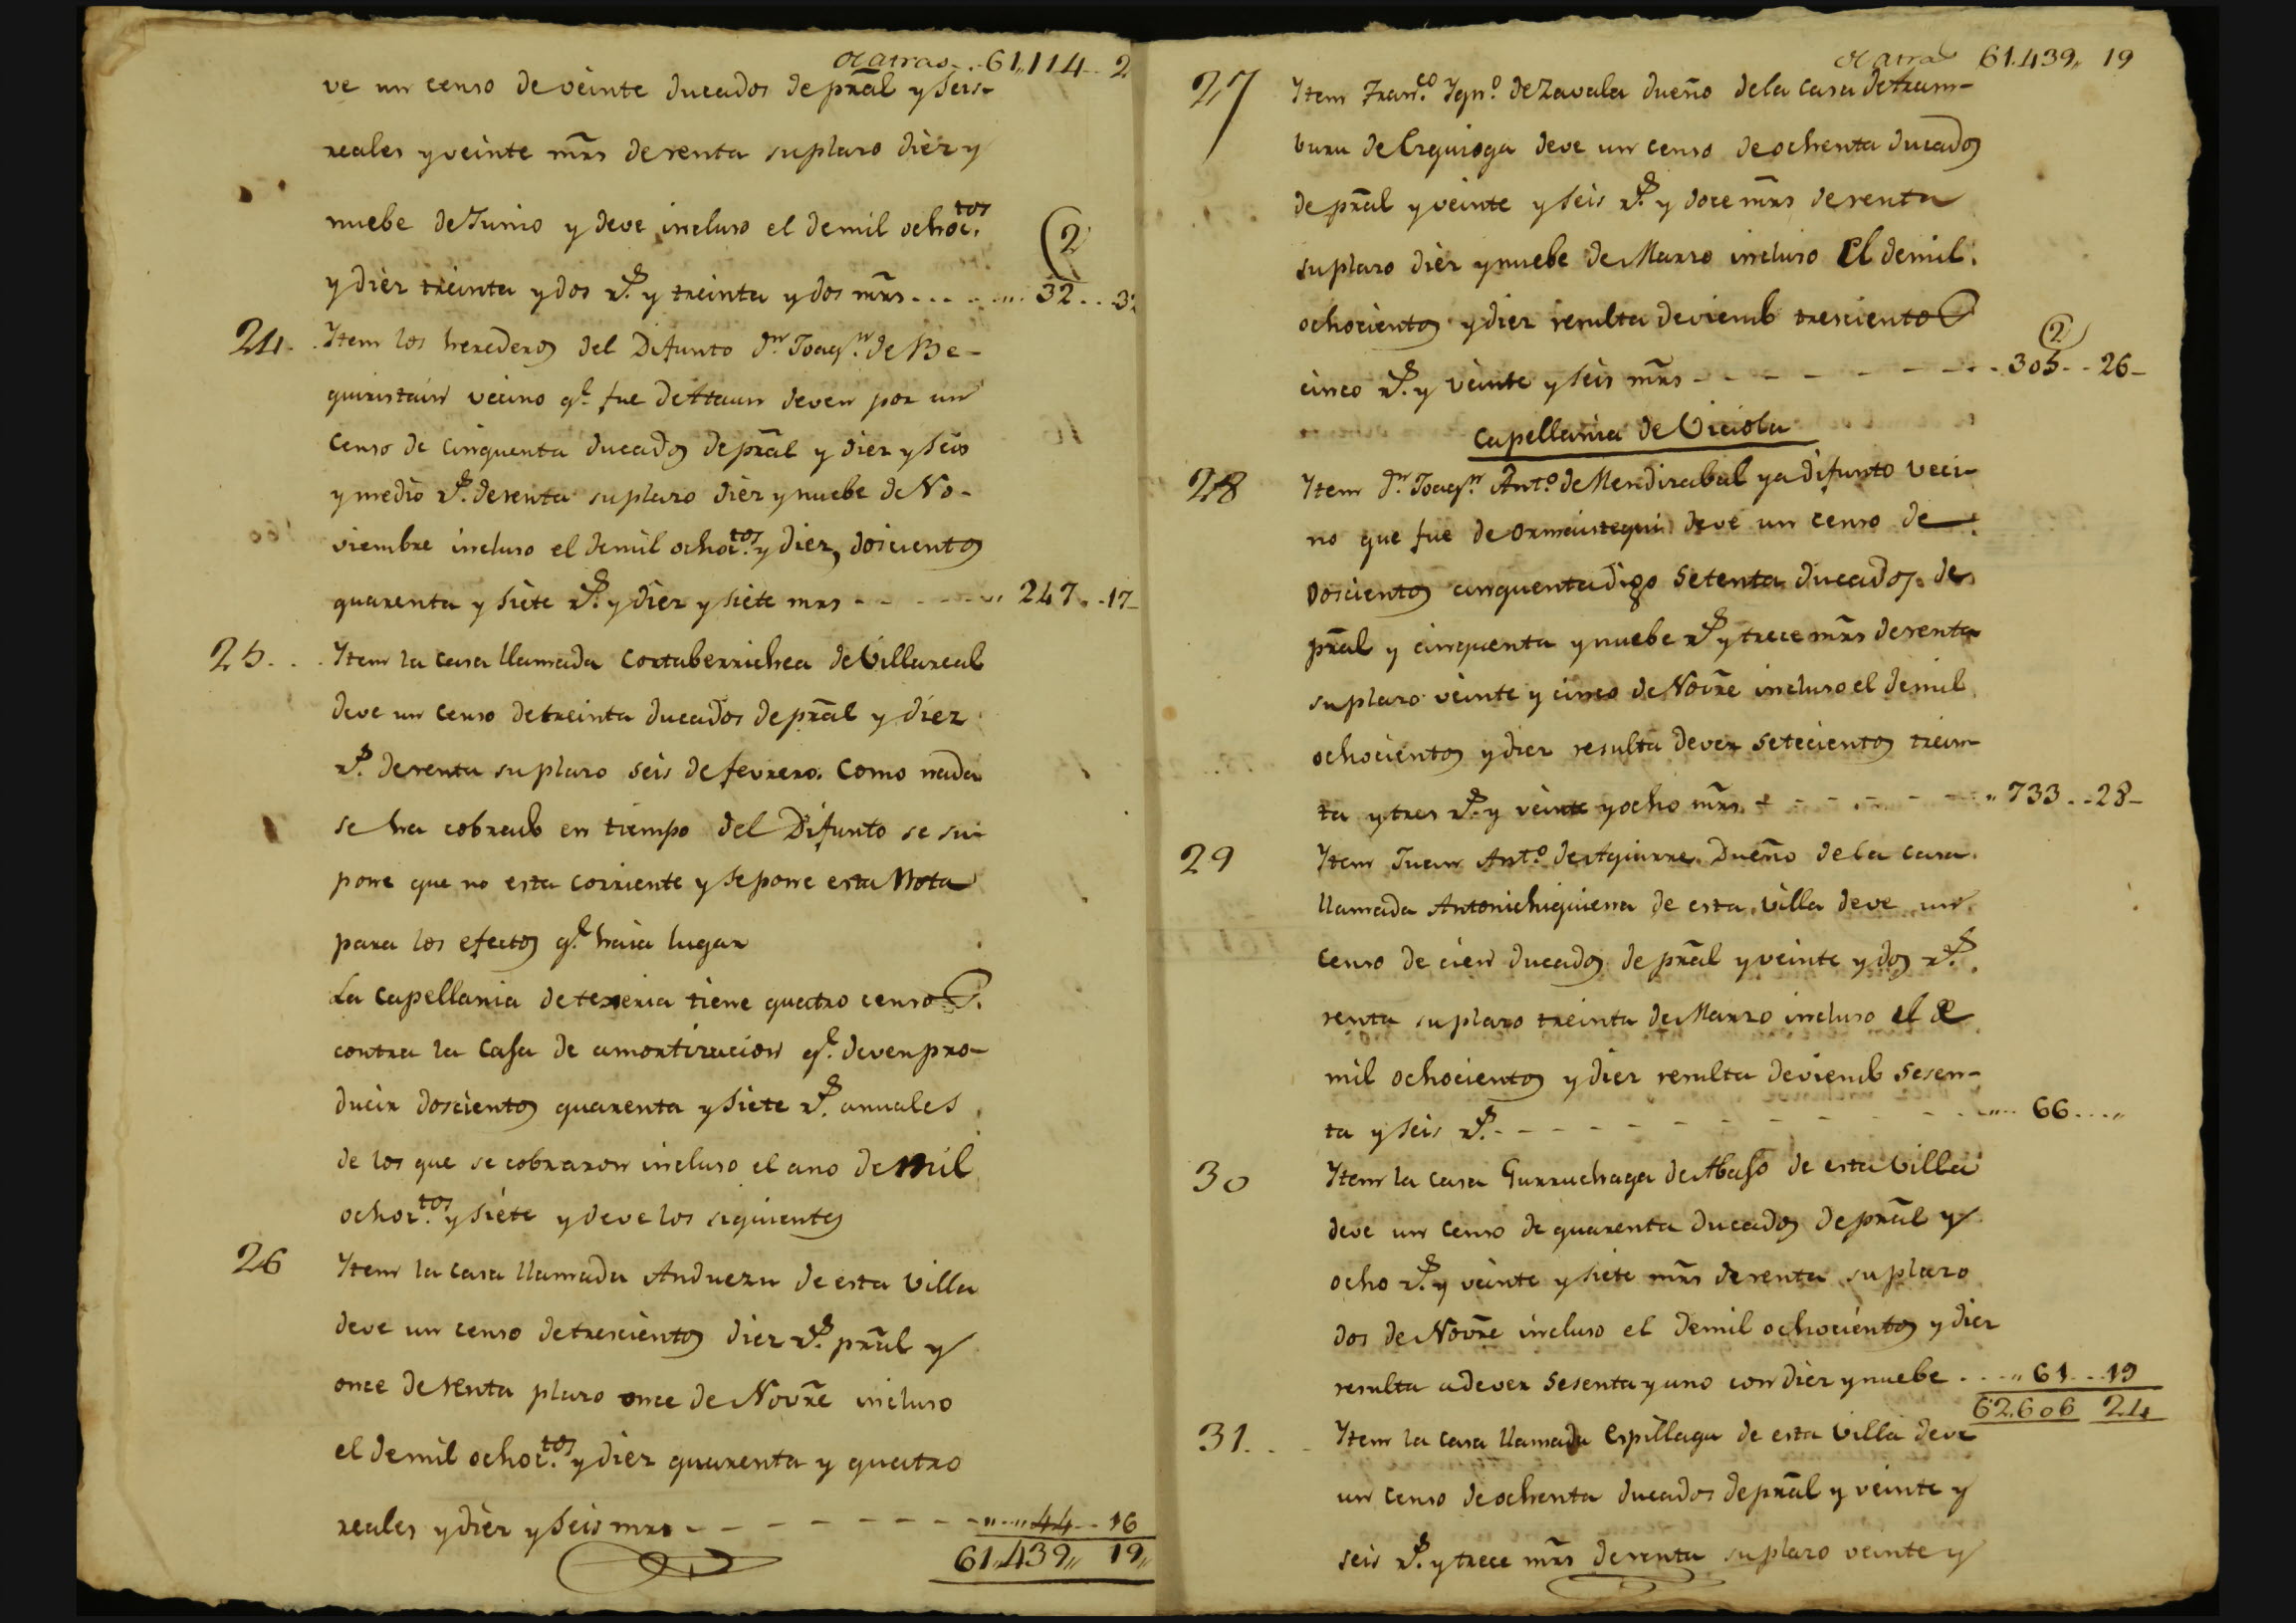 de atras...61,,114..2
ve un censo de veinte ducados de pral y seis
reales y veinte mrs de renta su plazo diez y
nuebe de Junio y deve incluso el de mil ochoc.tos
(2)
y diez treinta y dos rs. y treinta y dos mrs........ 32...3
24. Item los herederos del Difunto dn Joaqn. de Be-
guiristain vecino qe. fue de Ataun deven por un
censo de cinquenta ducados de pral y diez y seis
y medio rs. de renta su plazo diez y nuebe de No-
viembre incluso el de mil ochoc.tos y diez, doscientos
quarenta y siete rs. y diez y siete mrs - - - - - 247..17-
25... Item la casa llamada Cortaberrichea de Villareal
deve un censo de treinta ducados de pral y diez
rs. de renta su plazo seis de fevrero. Como nada
se ha cobrado en tiempo del Difunto se su-
pone que no esta corriente y se pone esta Nota
para los efectos qe. haia lugar
La Capellania de texeria tiene quatro censos.
contra la Casa de amortizacion qe. deven pro-
ducir doscientos quarenta y siete rs. anuales
de los que se cobraron incluso el ano de mil
ochoc.tos y siete y deve los siguientes
26 Item la casa llamada Anduezu de esta Villa
deve un censo de trescientos diez rs. pral y
once de renta plazo once de Novre incluso
el de mil ochoc.tos y diez quarenta y quatro
reales y diez y seis mrs - - - - - - - - 44 .. 16
61,,439,, 19,,
de atras 61.439,, 19
27 Item Fran.co Ygn.o de Zavala dueño de la casa de Aram-
buru de Ezquioga deve un censo de ochenta ducados
de pral y veinte y seis rs. y doce mrs de renta
su plazo diez y nuebe de Marzo incluso El de mil
ochocientos y diez resulta deviendo trescientos
(2)
cinco rs. y veinte y seis mrs - - - - - - - - 305 - - 26-
Capellania de Viciola
28 Item dn Joaqn Ant.o de Mendizabal ya difunto veci-
no que fue de Ormaiztegui deve un censo de
doscientos cinquenta digo setenta ducados de
pral y cinquenta y nuebe rs. y trece mrs de renta
su plazo veinte y cinco de Novre incluso el de mil
ochocientos y diez resulta dever setecientos trein-
ta y tres rs. y veinte y ocho mrs. - - - - - - ,, 733..28-
29 Item Juan Ant.o de Aguirre Dueño de la casa
llamada Antonichiquiena de esta villa deve un
censo de cien ducados de pral y veinte y dos rs.
renta su plazo treinta de Marzo incluso el de
mil ochocientos y diez resulta deviendo sesen-
ta y seis rs. - - - - - - - - - - 66...,,
30 Item la casa Gurruchaga de Abaso de esta Villa
deve un censo de quarenta ducados de pral y
ocho rs. y veinte y siete mrs de renta su plazo
dos de Novre incluso el de mil ochocientos y diez
resulta a dever sesenta y uno con diez y nuebe ....,, 61...19
62.606 24
31... Item la casa llamada Espillaga de esta Villa deve
un censo de ochenta ducados de pral y veinte y
seis rs. y trece mrs de renta su plazo veinte y